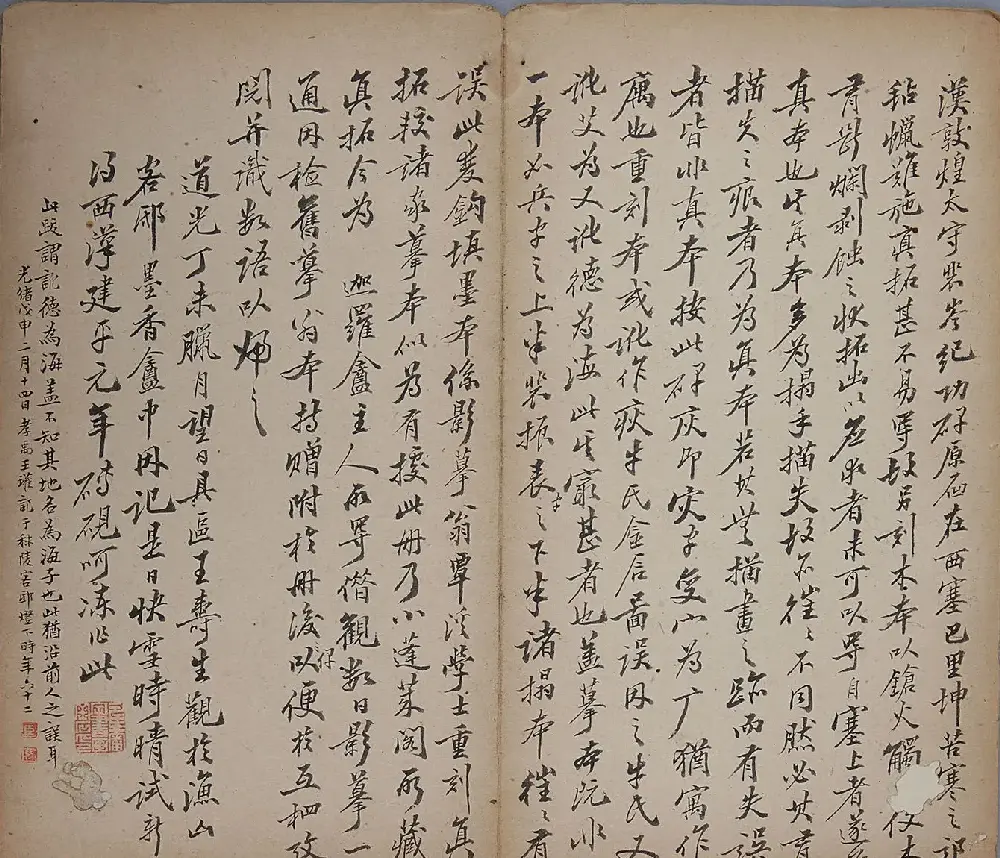 漢敦煌太守裴岑紀功碑原石在西塞巴里坤苦寒之
毡蠟難施真拓甚不易得故另刻木本以鎗火觸
有斷爛剥蝕之狀拓出以應求者未可以得自塞上者遂
真本也其真本多為搨手描失故往往不同然必其有
描失之痕者乃為真本若其無描畫之跡而有失誤
者皆非真本按此碑灰即灾字变山為厂猶寓作
厲也重刻本或訛作疢牛氏金石啚誤因之牛氏又
訛艾為又訛德為海此其最甚者也蓋摹本既非
一本必兵字之上半裴振表字之下半諸搨本往往有
誤此双鈎填墨本係影摹翁覃溪學士重刻真
拓較諸家摹本似為有據此册乃小蓬萊閣所藏
真拓今為 迦羅盦主人所得借觀數日影摹一
通因檢舊摹翁本持贈附於册後以便於互相攷
閱并識數語以歸之
道光丁未臘月望日具區王壽生觀於漁山
客邸墨香盦中因記是日快雪時晴試新
得西漢建平元年磚硯呵凍作此
此跋謂訛德為海蓋不知其地名為海子也此猶沿前人之誤耳
光緒戊申二月十四日孝禹王瓘記于秣陵客邸燈下時年六十二